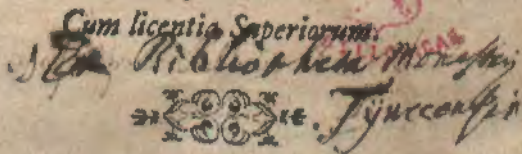 Cum licentia Superiorum.
Ex Bibliotheca Monastrij
Tynecensis